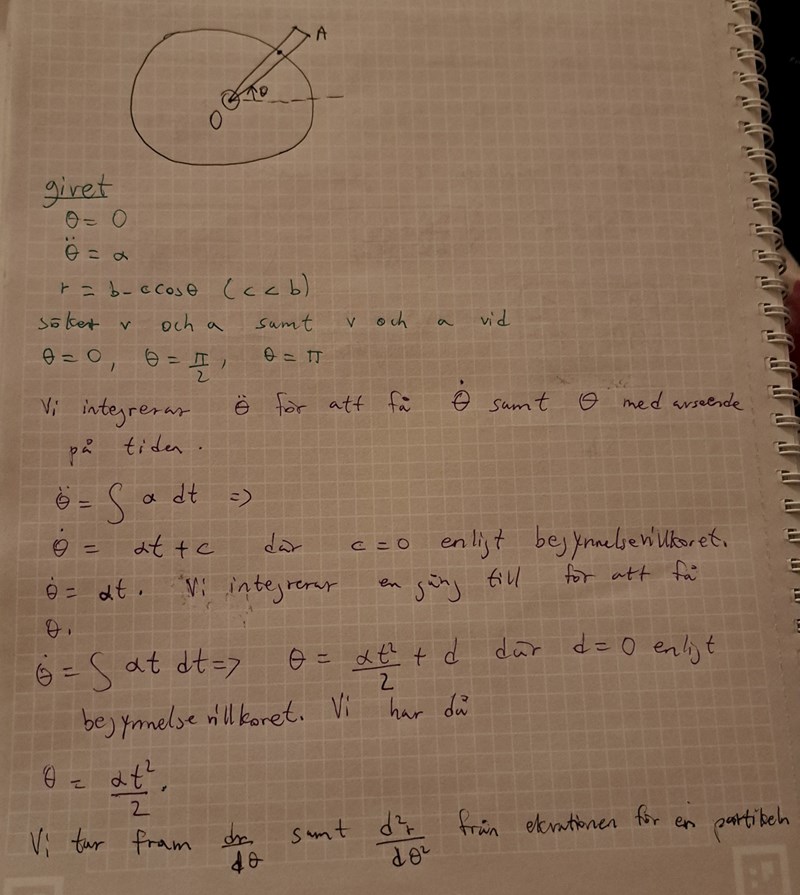 A
θ
O
givet
θ = 0
θ̈ = α
r = b - c cosθ (c < b)
söker v och a samt v och a vid
θ = 0, θ = π/2, θ = π
Vi integrerar θ̈ för att få θ̇ samt θ med avseende
på tiden.
θ̈ = ∫ α dt =>
θ̇ = αt + c där c = 0 enligt begynnelsevillkoret.
θ̇ = αt. Vi integrerar en gång till för att få
θ.
θ̇ = ∫ αt dt => θ = αt²/2 + d där d = 0 enligt
begynnelsevillkoret. Vi har då
θ = αt²/2.
Vi tar fram dr/dθ samt d²r/dθ² från ekvationen för en partikeln